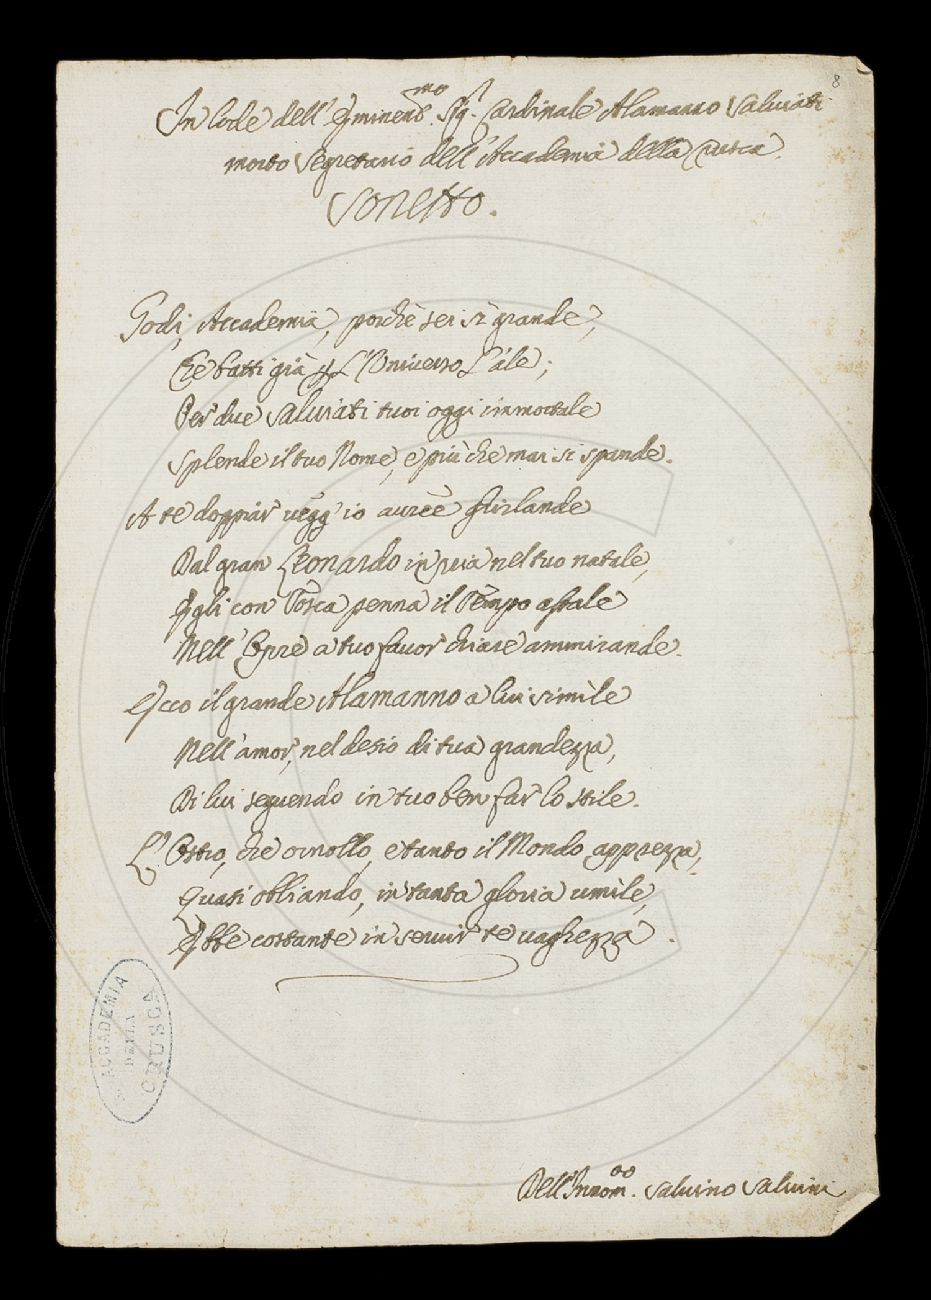 8
In lode dell' Eminent.mo Sig.r Cardinale Alamanno Salviati
morto Segretario dell'Accademia della Crusca.
Sonetto.
Godi, Accademia, poichè sei sì grande,
Che batti già per l'Universo l'ale;
Per due Salviati tuoi oggi immortale
Splende il tuo Nome, e più che mai si spande.
A te doppiar vegg'io auree Girlande
Dal gran Leonardo in pria nel tuo natale,
Egli con Tosca penna il Tempo assale
Nell'Opre a tuo favor chiare ammirande.
Ecco il grande Alamanno a lui simile
Nell'amor, nel desio di tua grandezza,
Di lui seguendo in tuo ben far lo stile.
L'Ostro, che ornollo, e tanto il Mondo apprezza,
Quasi obliando, in tanta gloria umile,
Ebbe costante in servir te vaghezza.
R. ACCADEMIA
DELLA
CRUSCA
Dell'Innom.to Salvino Salvini